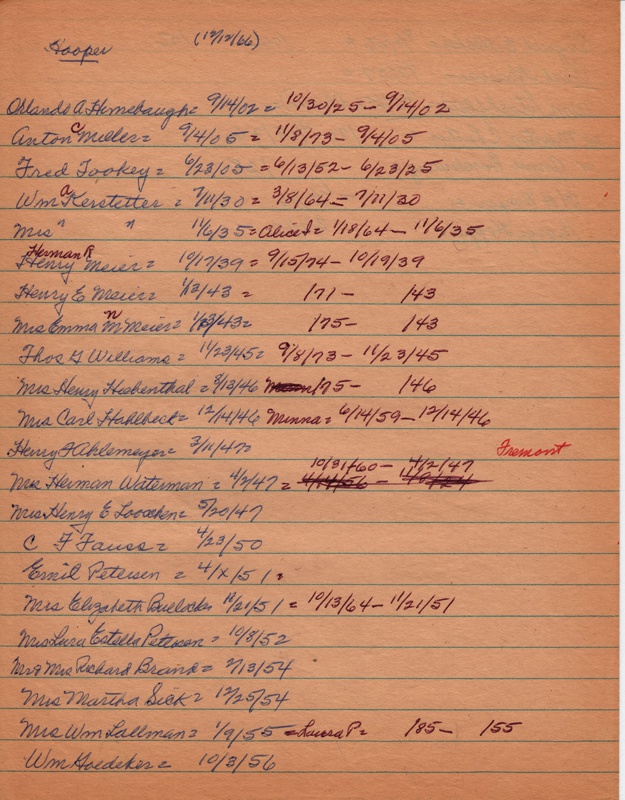 Hooper (12/12/66)
Orlando A Himebaugh = 9/14/02 = 10/30/25 - 9/14/02
Anton C Miller = 9/4/05 = 11/8/73 - 9/4/05
Fred Tookey = 6/23/05 = 6/13/52 - 6/23/25
Wm A Kerstetter = 7/11/30 = 3/8/64 = 7/11/30
Mrs " " 11/6/35 = Alice I = 1/18/64 - 11/6/35
Herman R
Henry Meier = 10/17/39 = 9/15/74 - 10/19/39
Henry E Meier = 1/12/43 = /71 - /43
Mrs Emma M Meier = /43 = /75 - /43
Thos G Williams = 11/23/45 = 9/8/73 - 11/23/45
Mrs Henry Hebenthal = 8/13/46 /75 - /46
Mrs Carl Hahlbeck = 12/14/46 Minna = 6/14/59 - 12/14/46
Henry F Ahlemeyer = 3/11/47 = Fremont
10/31/60 - 4/2/47
Mrs Herman Waterman = 4/2/47 =
Mrs Henry E Looschen = 5/20/47
C F Fauss = 4/23/50
Emil Petersen = 4/x/51 =
Mrs Elizabeth Bullock = 11/21/51 = 10/13/64 - 11/21/51
Mrs Lura Estella Peterson = 10/8/52
Mr & Mrs Richard Brand = 2/13/54
Mrs Martha Sick = 12/25/54
Mrs Wm Lallman = 1/9/55 = Laura P = /85 - /55
Wm Goedeker = 10/3/56